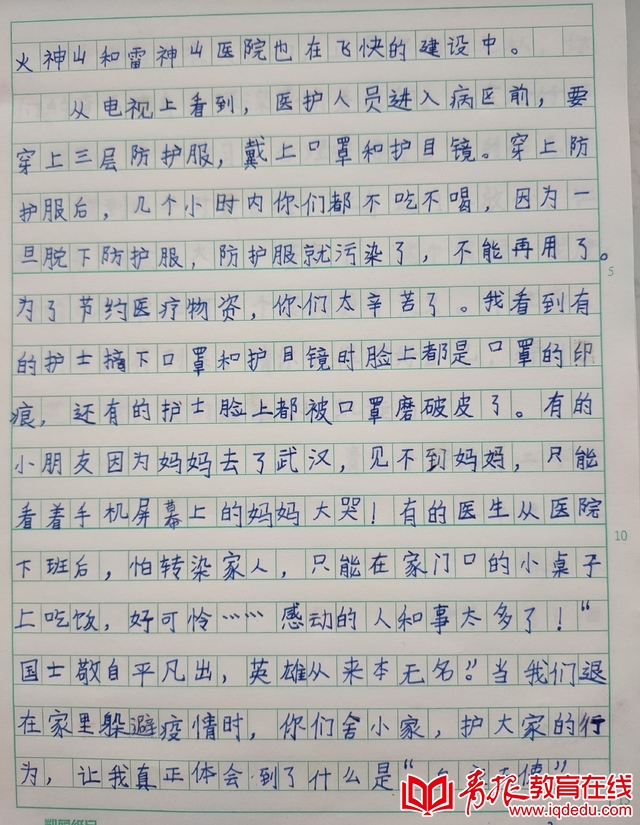 火神山和雷神山医院也在飞快的建设中。
从电视上看到，医护人员进入病区前，要
穿上三层防护服，戴上口罩和护目镜。穿上防
护服后，几个小时内你们都不吃不喝，因为一
旦脱下防护服，防护服就污染了，不能再用了。
5
为了节约医疗物资，你们太辛苦了。我看到有
的护士摘下口罩和护目镜时脸上都是口罩的印
痕，还有的护士脸上都被口罩磨破皮了。有的
小朋友因为妈妈去了武汉，见不到妈妈，只能
看着手机屏幕上的妈妈大哭！有的医生从医院
10
下班后，怕转染家人，只能在家门口的小桌子
上吃饭，好可怜……感动的人和事太多了！“
国士敬自平凡出，英雄从来本无名”。当我们退
在家里躲避疫情时，你们舍小家，护大家的行
为，让我真正体会到了什么是“
青报教育在线
www.iqdedu.com